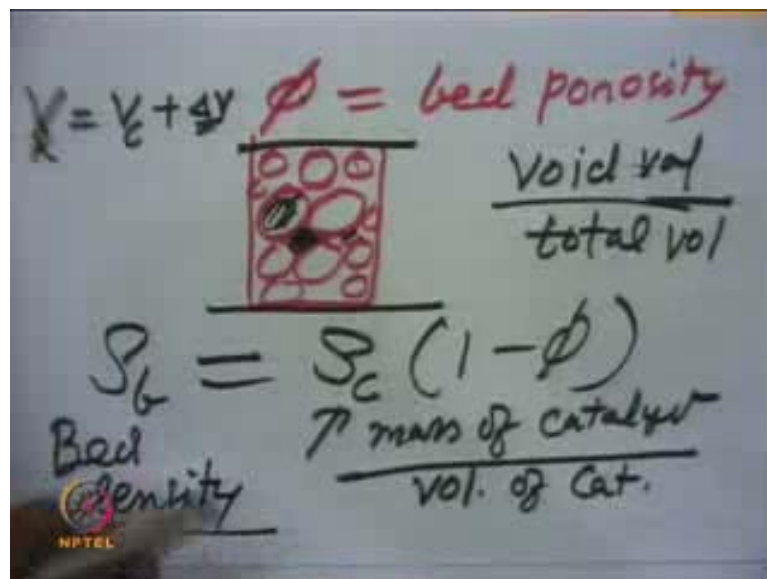 V = Vc + ΔV
R
φ = bed porosity
Void vol
total vol
ρb = ρc (1 - φ)
Bed
Density
↑ mass of catalyst
vol. of Cat.
NPTEL